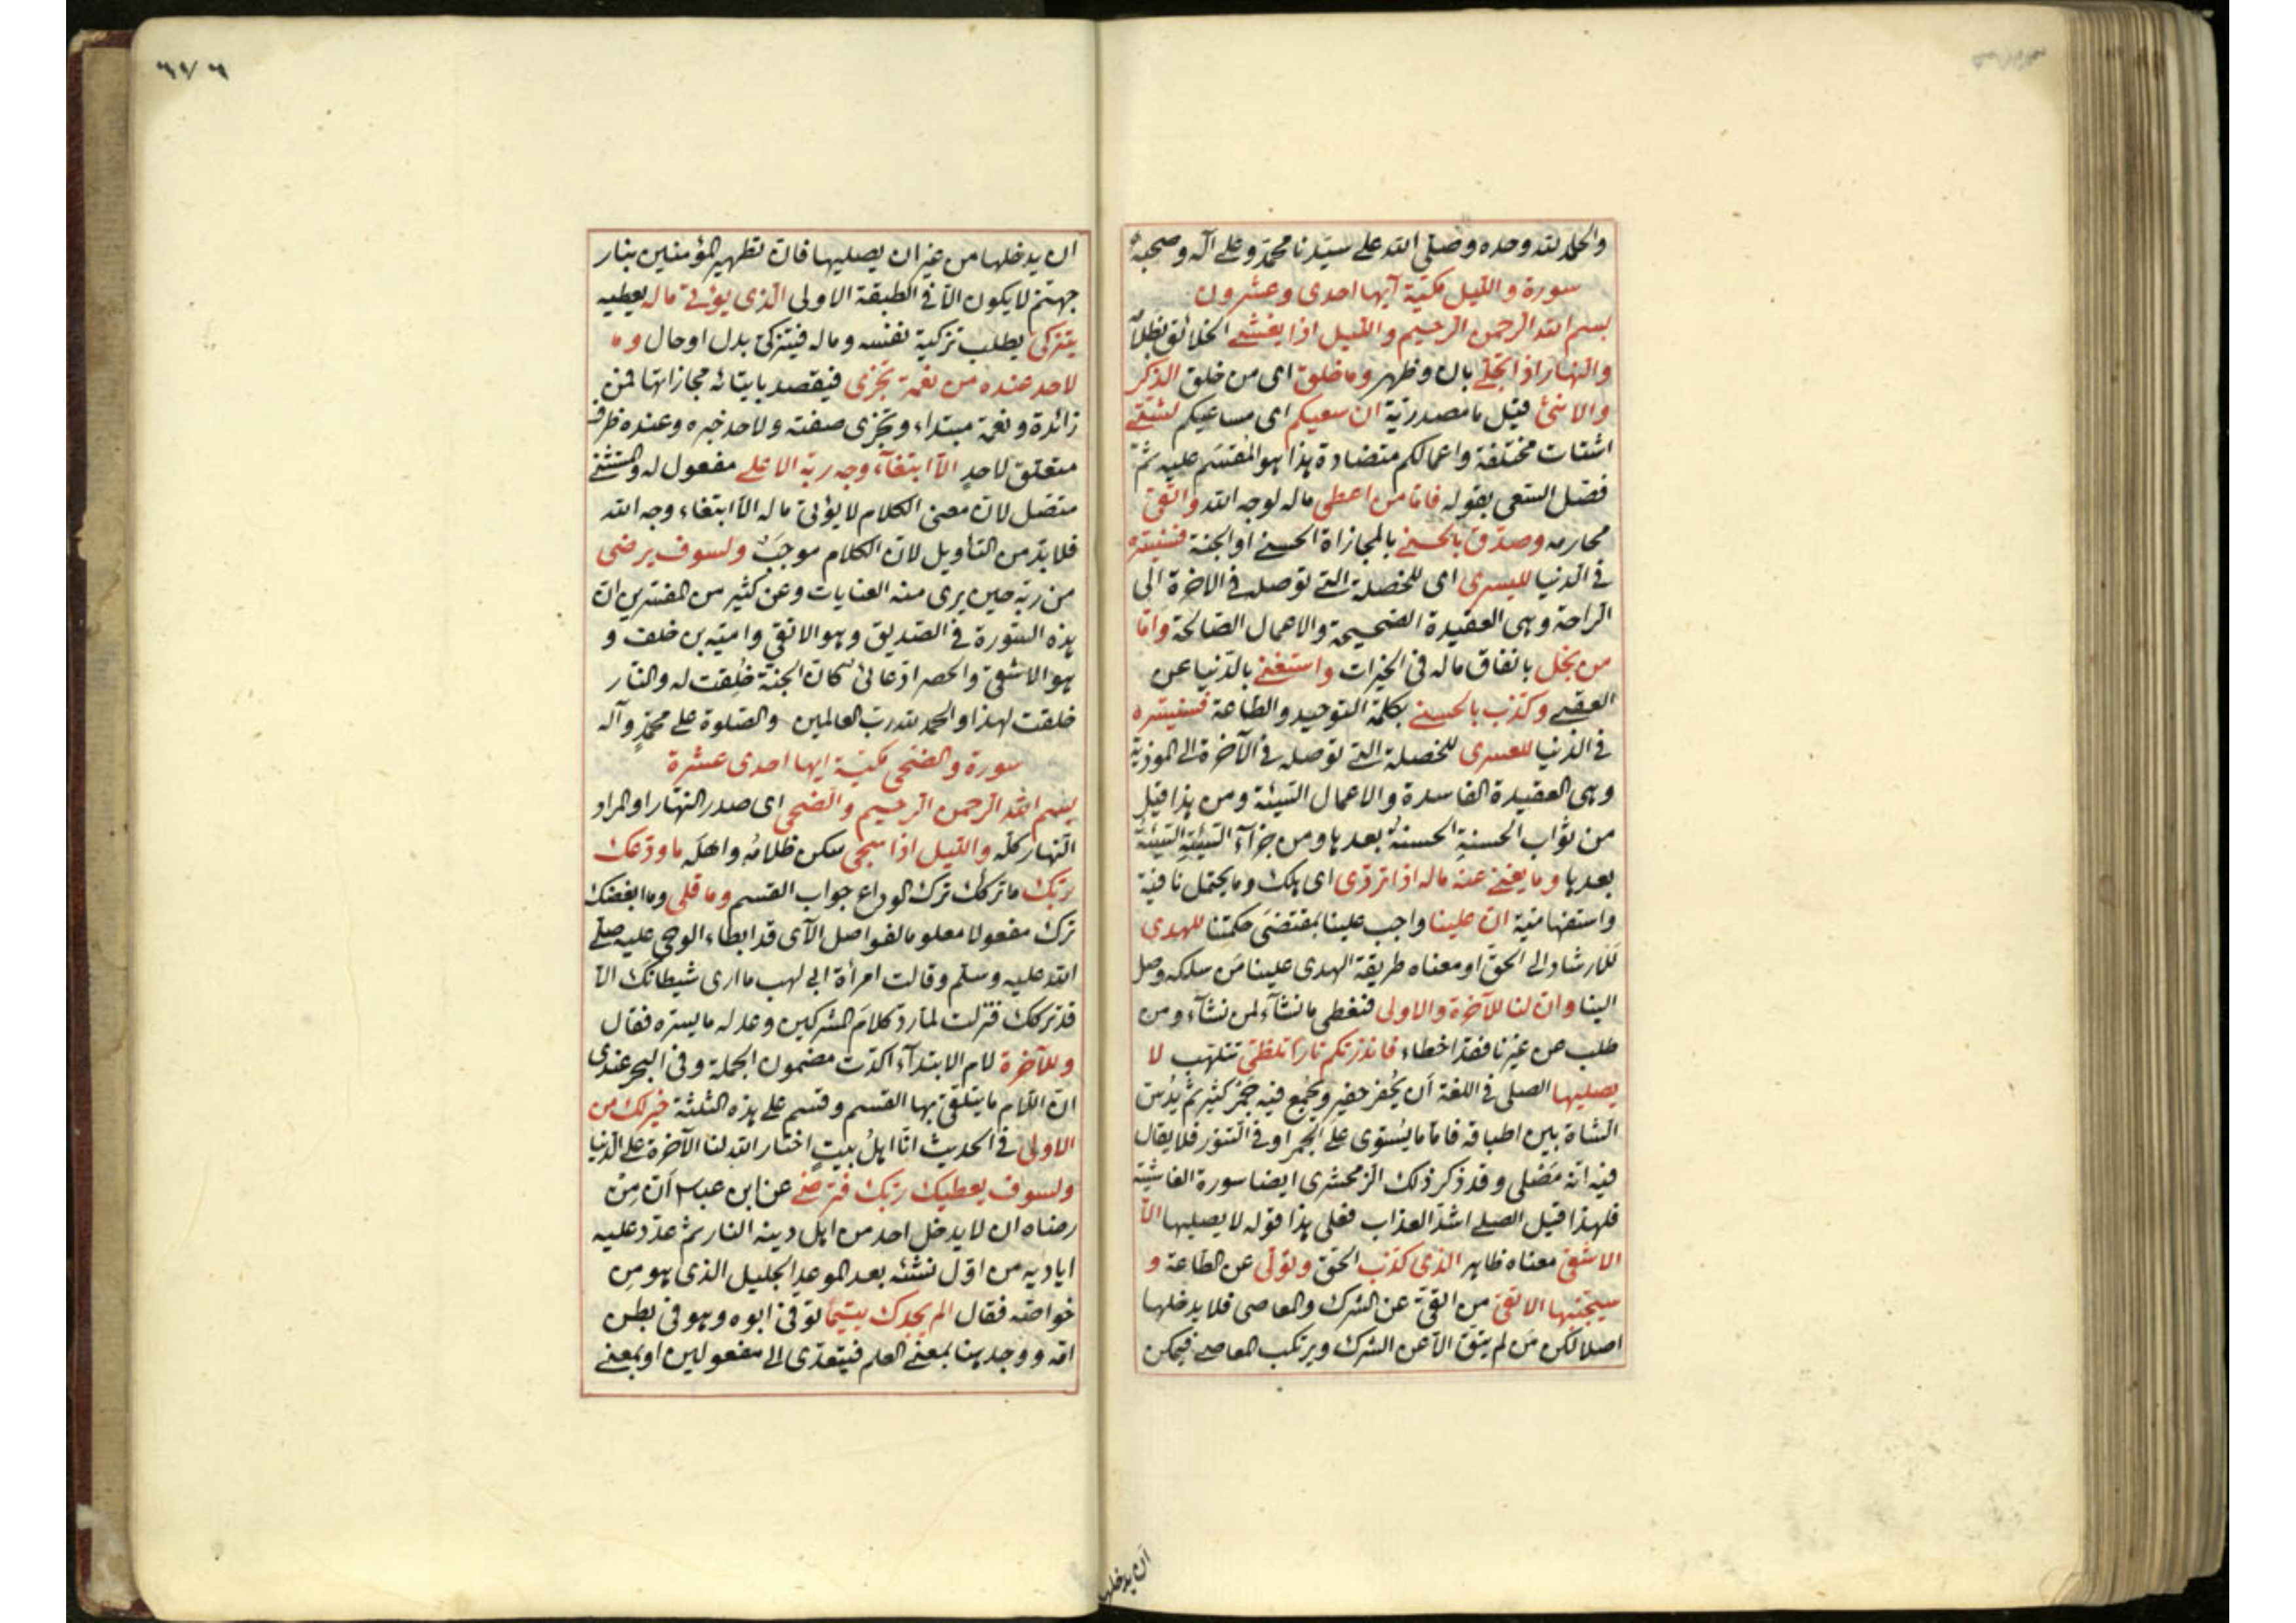 والحمد لله وحده وصلى الله على سيدنا محمد وعلى آله وصحبه
سورة والليل مكية آيها احدى وعشرون
بسم الله الرحمن الرحيم والليل اذا يغشى الخلائق بظلامه
والنهار اذا تجلى بان وظهر وما خلق اى من خلق الذكر
والانثى قيل ما مصدرية ان سعيكم اى مساعيكم لشتى
اشتات مختلفة واعمالكم متضادة هذا هو المقسم عليه ثم
فصل السعى بقوله فاما من اعطى ماله لوجه الله واتقى
محارمه وصدق بالحسنى بالمجازاة الحسنى او الجنة فسنيسره
فى الدنيا لليسرى اى للخصلة التى توصله فى الاخرة الى
الراحة وهى العقيدة الصحيحة والاعمال الصالحة واما
من بخل بانفاق ماله فى الخيرات واستغنى بالدنيا عن
العقبى وكذب بالحسنى بكلمة التوحيد والطاعة فسنيسره
فى الدنيا للعسرى للخصلة التى توصله فى الآخرة الى الموذية
وهى العقيدة الفاسدة والاعمال السيئة ومن هذا قيل
من ثواب الحسنةِ الحسنةُ بعدها ومن جزآء السيئةِ السيئةُ
بعدها وما يغنى عنه ماله اذا تردى اى هلك وما يحتمل نافية
واستفهامية ان علينا واجب علينا بمقتضى حكمتنا للهدى
للارشاد الى الحق او معناه طريقة الهدى علينا من سلكه وصل
الينا وان لنا للآخرة والاولى فنعطى ما نشآء لمن نشآء ومن
طلب من غيرنا فقد اخطاء فانذرتكم نارا تلظى تتلهب لا
يصليها الصلى فى اللغة ان يُحفر حفير ويُجمع فيه جمر كثير ثم يُدس
الشاة بين اطباقه فاما ما يُشوى على الجمر او فى التنور فلا يقال
فيه انه مَصْلى وقد ذكر ذلك الزمخشرى ايضا سورة الغاشية
فلهذا قيل الصلى اشد العذاب فعلى هذا قوله لا يصليها الا
الاشقى معناه ظاهر الذى كذب الحق وتولى عن الطاعة و
سيجنبها الاتقى من اتقى عن الشرك والمعاصى فلا يدخلها
اصلا لكن من لم يتق الا عن الشرك ويرتكب المعاصى فيمكن
ان يدخلها
ان يدخلها من غير ان يصليها فان تطهير المؤمنين بنار
جهنم لا يكون الا فى الطبقة الاولى الذى يؤتى ماله يعطيه
يتزكى يطلب تزكية نفسه وماله فيتزكى بدل او حال وما
لاحد عنده من نعمة تجزى فيقصد بايتائه مجازاتها فمن
زائدة ونعمة مبتداء وتجزى صفته ولاحد خبره وعنده ظرف
متعلق لاحدٍ الا ابتغآء وجه ربه الاعلى مفعول له والمستثنى
متصل لان معنى الكلام لا يؤتى ماله الا ابتغاء وجه الله
فلا بد من التأويل لان الكلام موجَب ولسوف يرضى
من ربه حين يرى منه العنايات وعن كثير من المفسرين ان
هذه السورة فى الصديق وهو الاتقى وامية بن خلف و
هو الاشقى والحصر ادعائى كان الجنة خلقت له والنار
خلقت لهذا والحمد لله رب العالمين والصلوة على محمدٍ وآله
سورة والضحى مكية ايها احدى عشرة
بسم الله الرحمن الرحيم والضحى اى صدر النهار او المراد
النهار كله والليل اذا سجى سكن ظلامُه واهلَه ما ودعك
ربك ما تركك ترك الوداع جواب القسم وما قلى وما ابغضك
ترك مفعولا معلوما لفواصل الآى قد ابطاء الوحى عليه صلى
الله عليه وسلم وقالت امرأة ابى لهب ما ارى شيطانك الا
قد تركك فنزلت لما رد كلامَ المشركين وعد له ما يسره فقال
وللآخرة لام الابتدآء اكدت مضمون الجملة وفى البحر عندى
ان اللام ما يتلقى بها القسم وقسم على هذه الثلثة خير لك من
الاولى فى الحديث انا اهلُ بيتٍ اختار الله لنا الآخرة على الدنيا
ولسوف يعطيك ربك فترضى عن ابن عباس ان مِن
رضاه ان لا يدخل احد من اهل دينه النار ثم عدد عليه
اياديه من اول نشئه بعد الموعد الجليل الذى هو من
خواصه فقال الم يجدك يتيما توفى ابوه وهو فى بطن
امه ووجد هنا بمعنى العلم فيتعدى الى مفعولين او بمعنى